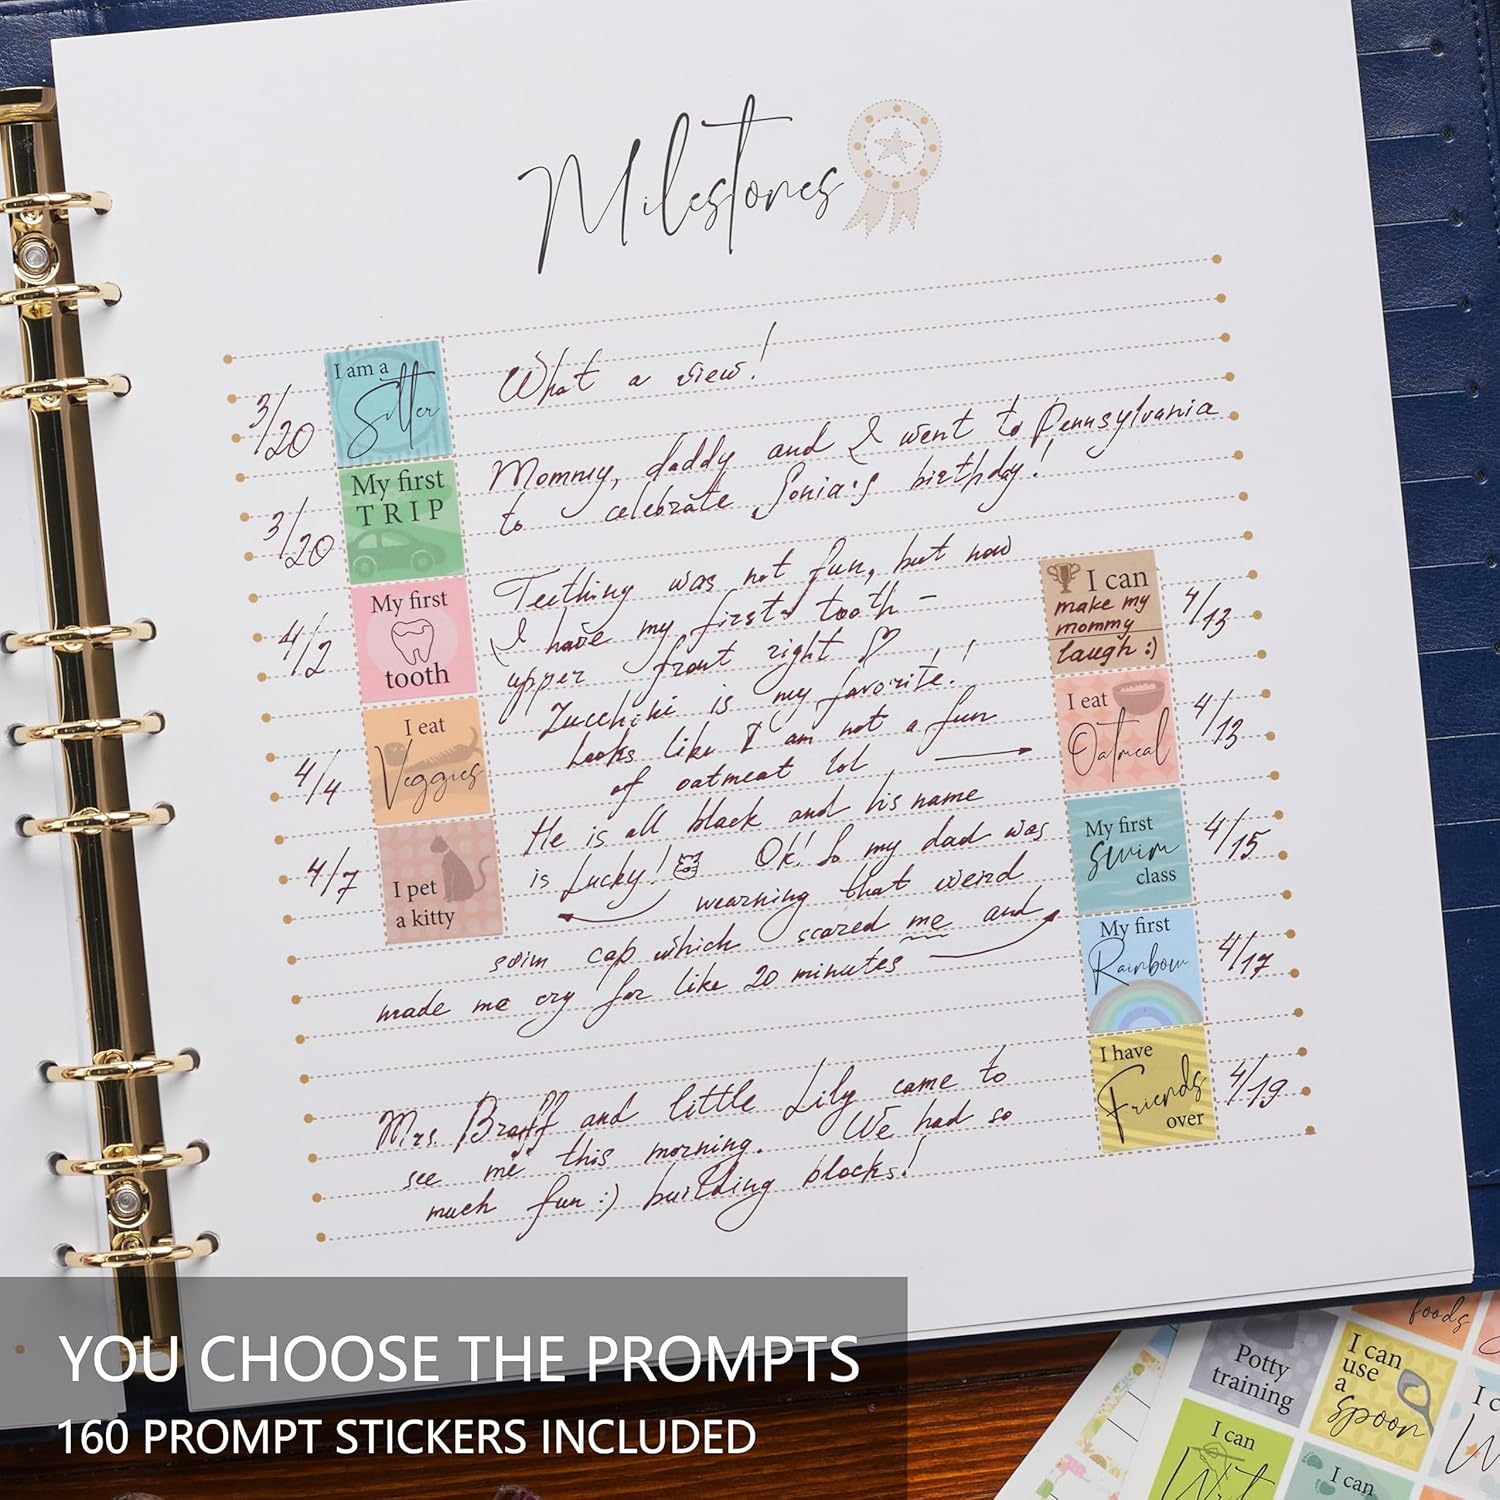 Milestones
3/20
I am a
Sitter
What a view!
3/20
My first
TRIP
Mommy, daddy and I went to Pennsylvania
to celebrate Sonia's birthday!
4/2
My first
tooth
Teething was not fun, but now
I have my first tooth –
upper front right ♡
4/4
I eat
Veggies
Zucchini is my favorite!
Looks like I am not a fun
of oatmeat lol
4/7
I pet
a kitty
He is all black and his name
is Lucky!
Ok! So my dad was
wearning that weird
swim cap which scared me and
made me cry for like 20 minutes
Mrs. Braff and little Lily came to
see me this morning. We had so
much fun :) building blocks!
I can
make my
mommy
laugh :)
4/13
I eat
Oatmeal
4/13
My first
swim
class
4/15
My first
Rainbow
4/17
I have
Friends
over
4/19
foods
Potty
training
I can
use
a
spoon
I can
Write
I can
YOU CHOOSE THE PROMPTS
160 PROMPT STICKERS INCLUDED